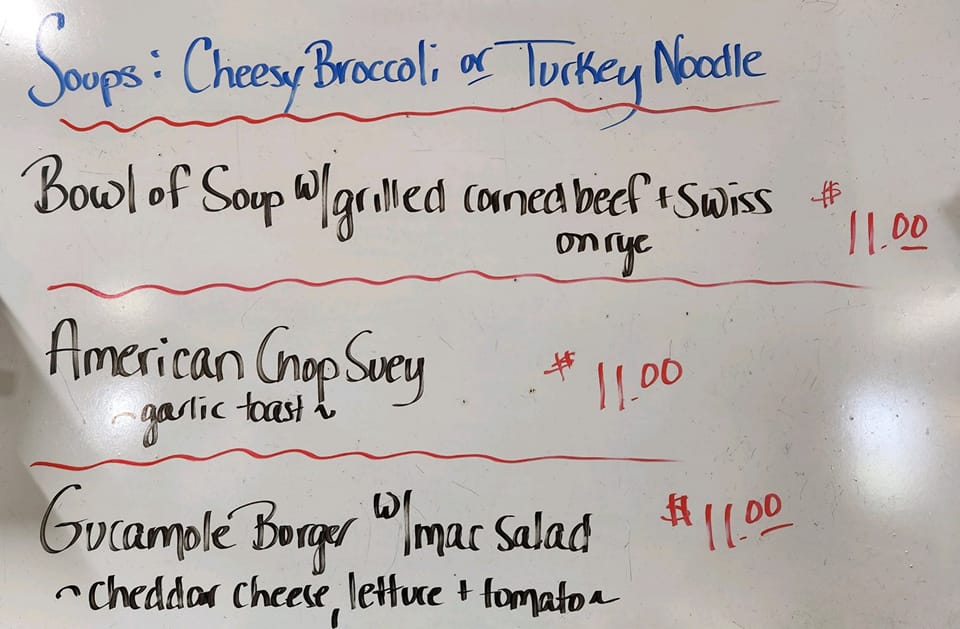 Soups: Cheesy Broccoli or Turkey Noodle
Bowl of Soup w/grilled corned beef + Swiss
on rye
$11.00
American Chop Suey $11.00
~garlic toast~
Gucamole Borger w/mac salad $11.00
~cheddar cheese, lettuce + tomato~